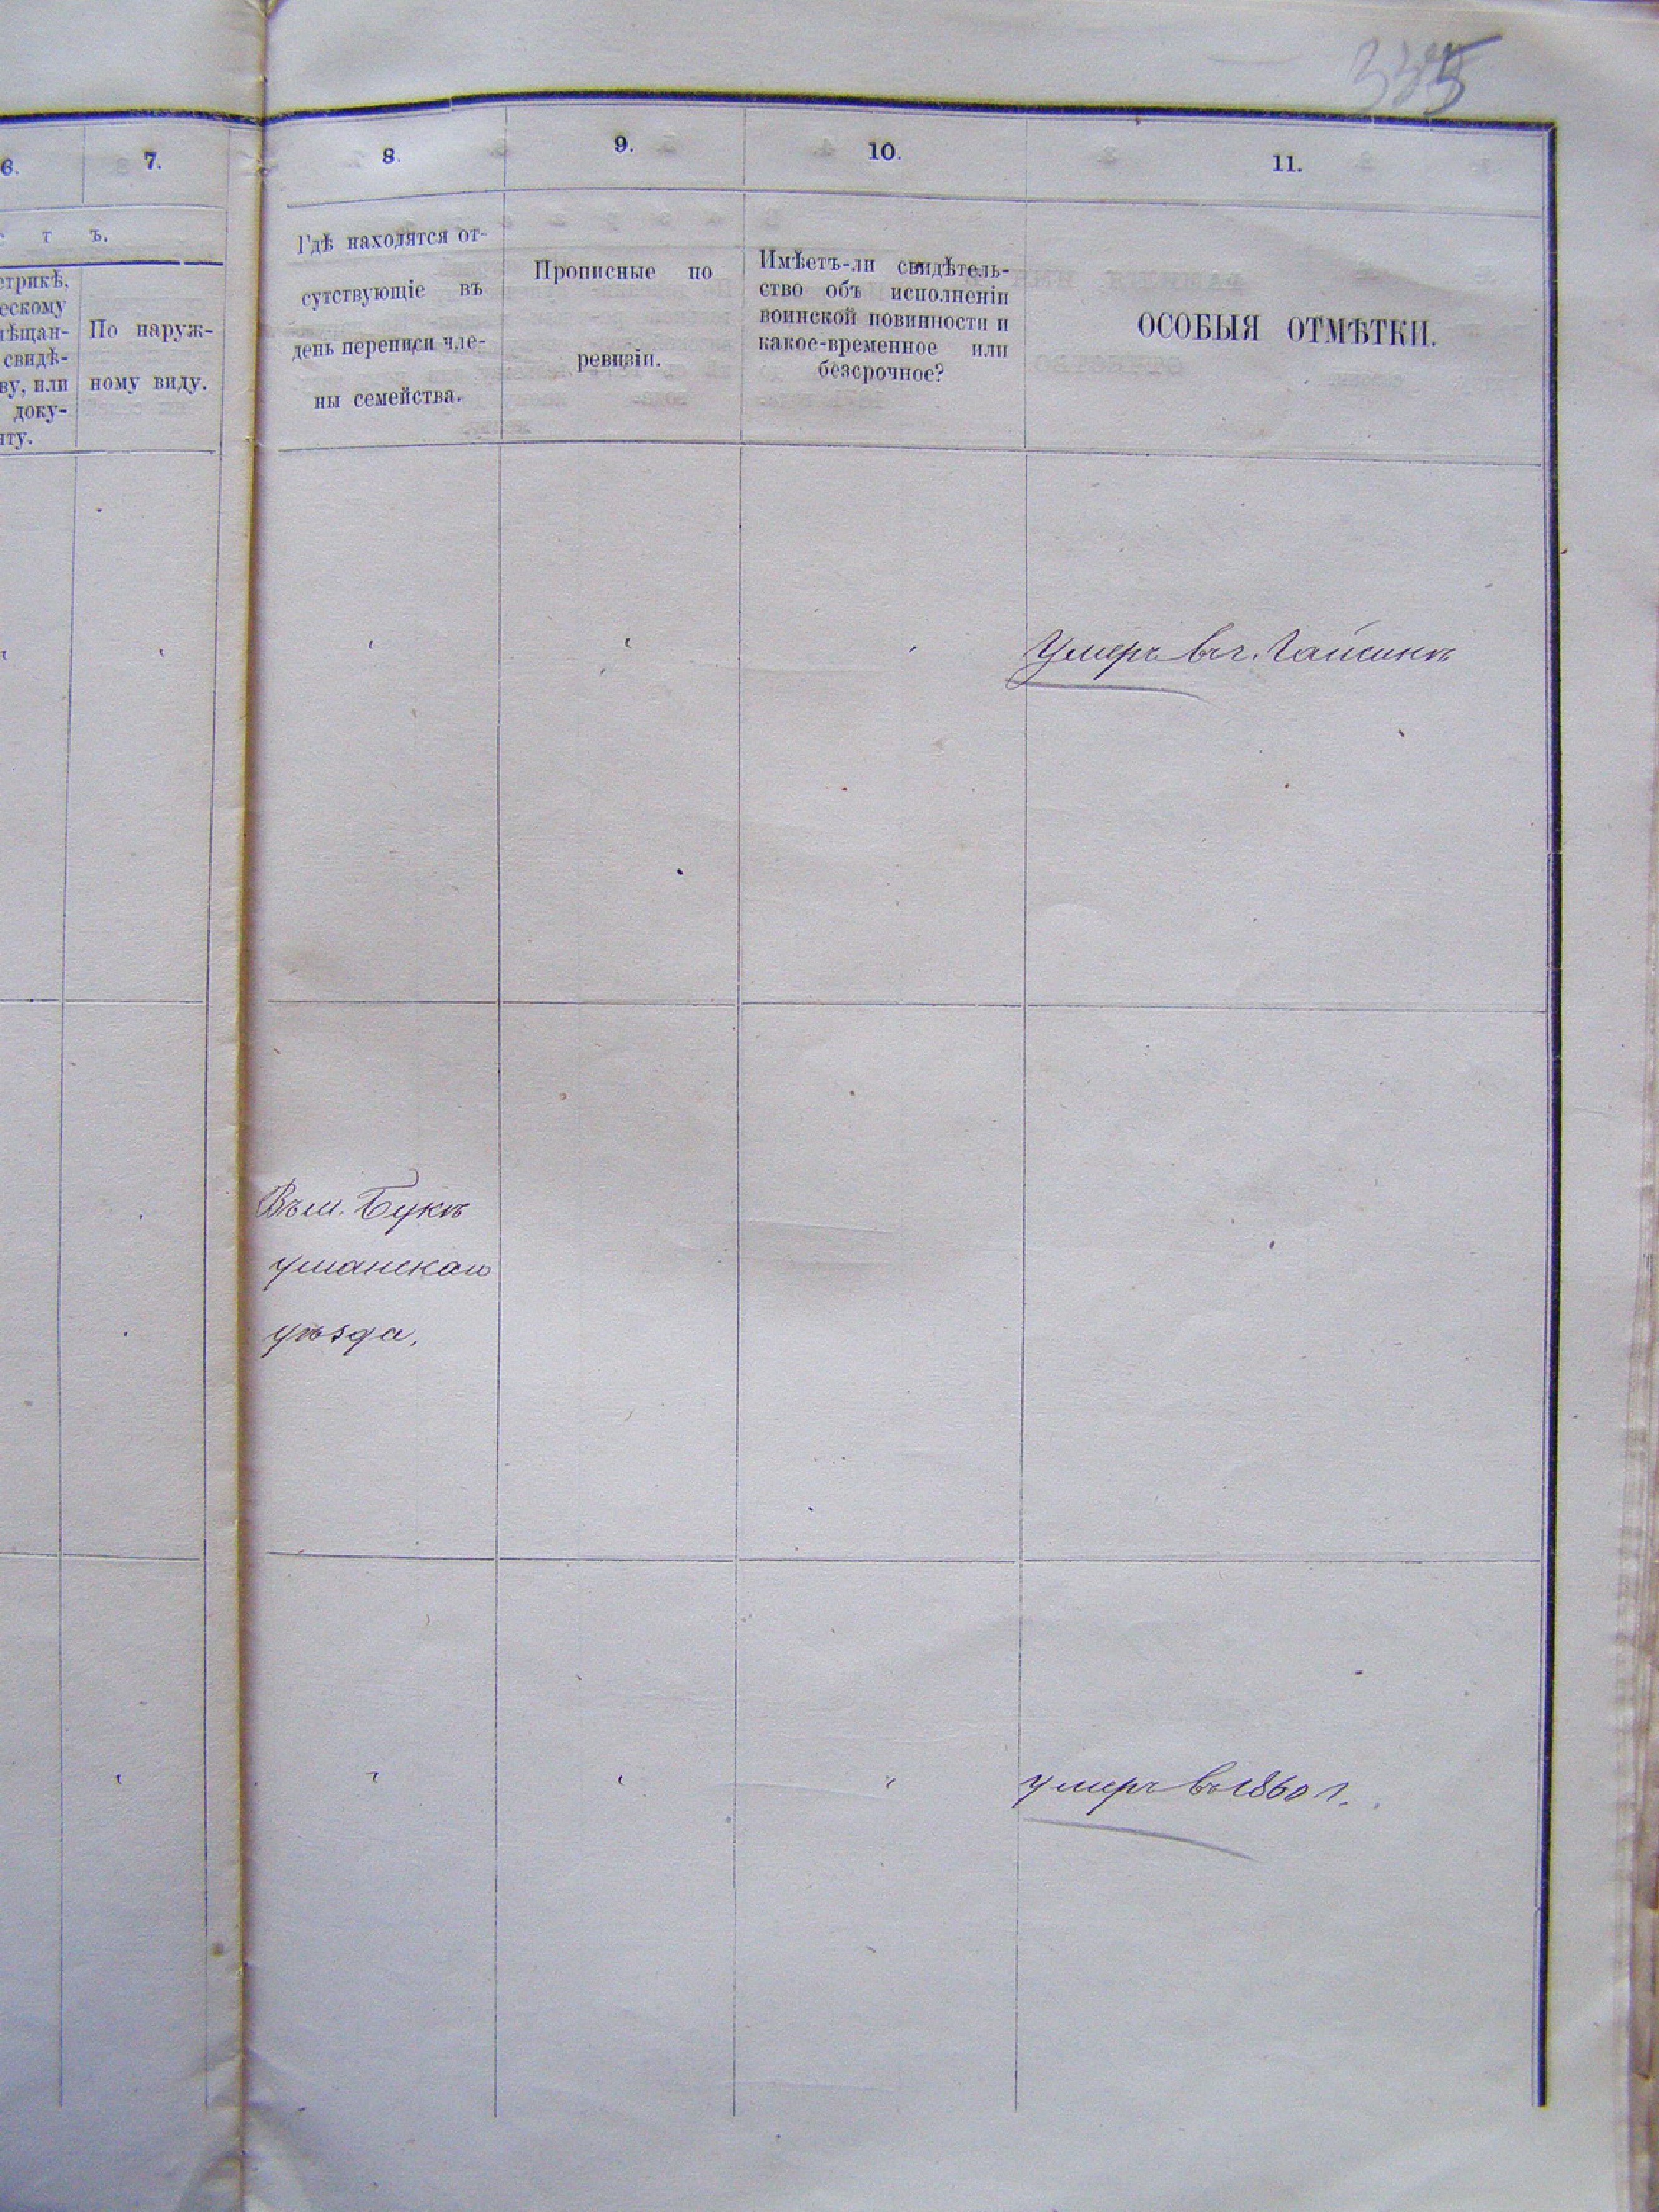 335
6.
7.
8.
9.
10.
11.
с т ъ.
етрикѣ,
ескому
мѣщан-
свидѣ-
ву, или
доку-
нту.
По наруж-
ному виду.
Гдѣ находятся от-
сутствующіе въ
день переписи чле-
ны семейства.
Прописные по
ревизіи.
Имѣетъ-ли свидѣтель-
ство объ исполненіи
воинской повинности и
какое-временное или
безсрочное?
ОСОБЫЯ ОТМѢТКИ.
Умеръ въ г. Гайсинѣ
Въ м. Букѣ
уманскаго
уѣзда.
умеръ въ 1860 г.